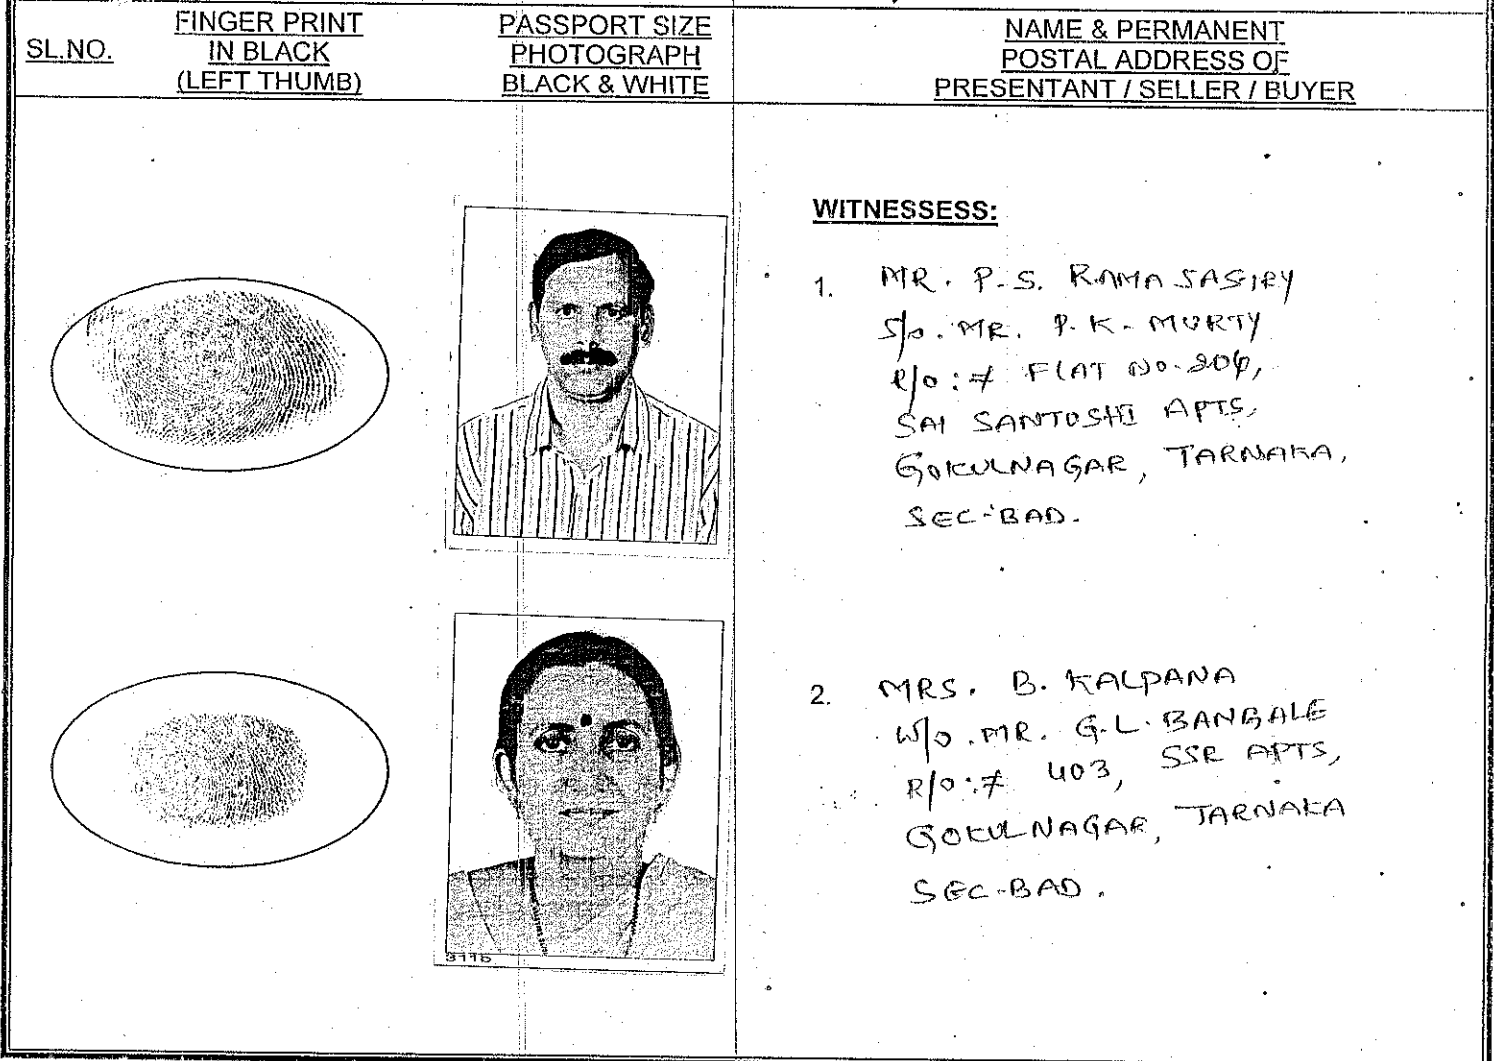 SL.NO.
FINGER PRINT
IN BLACK
(LEFT THUMB)
PASSPORT SIZE
PHOTOGRAPH
BLACK & WHITE
NAME & PERMANENT
POSTAL ADDRESS OF
PRESENTANT / SELLER / BUYER
WITNESSESS:
1. MR. P.S. RAMA SASTRY
S/o. MR. P.K. MURTY
R/o: # FLAT NO. 204,
SAI SANTOSHI APTS,
GOKULNAGAR, TARNAKA,
SEC-BAD.
2. MRS. B. KALPANA
W/o. MR. G.L. BANGALE
R/o: # 403, SSR APTS,
GOKULNAGAR, TARNAKA
SEC-BAD.